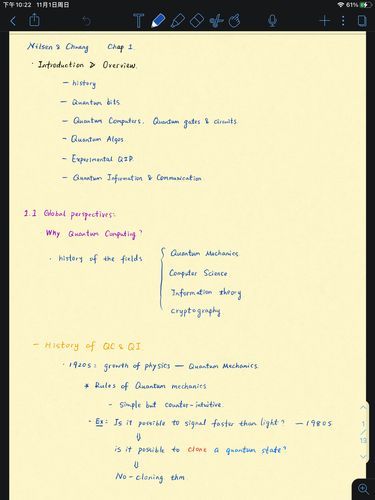 下午10:22 11月1日周日
61%
Nilsen & Chuang Chap 1
· Introduction & Overview.
– history
– Quantum bits
– Quantum Computers. Quantum gates & circuits
– Quantum Algos.
– Experimental QIP.
– Quantum Information & Communication
1.1 Global perspectives:
Why Quantum Computing?
· history of the fields
Quantum Mechanics
Computer Science
Information theory
cryptography
– History of QC & QI.
· 1920s: growth of physics — Quantum Mechanics.
* Rules of Quantum mechanics
– simple but counter-intuitive.
– Ex: Is it possible to signal faster than light? — 1980s
⇓
is it possible to clone a quantum state?
⇓
No-cloning thm
1
13